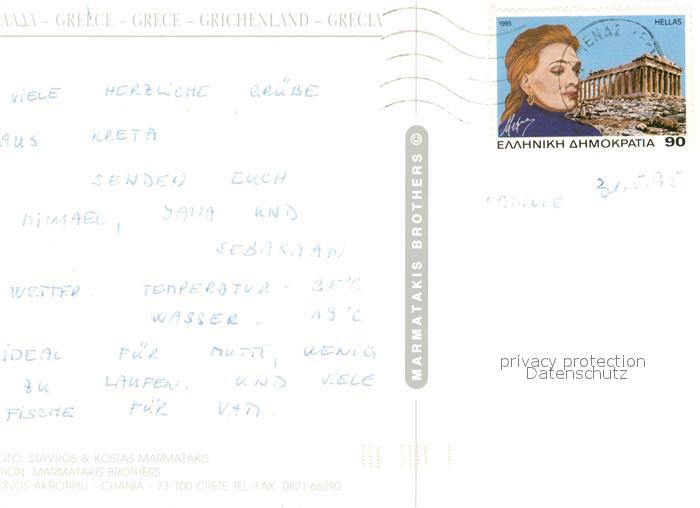 ΛΛΑΔΑ – GREECE – GRECE – GRICHENLAND – GRECIA
1995 HELLAS
ΕΛΛΗΝΙΚΗ ΔΗΜΟΚΡΑΤΙΑ 90
VIELE HERZLICHE GRÜßE
AUS KRETA
SENDEN EUCH
MICHAEL, JANA UND
SEBASTIAN
WETTER: TEMPERATUR - 35°C
WASSER - 19°C
IDEAL FÜR MUTTI, WENIG
ZU LAUFEN. UND VIELE
FISCHE FÜR VATI.
MARMATAKIS BROTHERS ©
FAMILIE 31.5.95
privacy protection
Datenschutz
OTO: STAVROS & KOSTAS MARMATAKIS
TION: MARMATAKIS BROTHERS
INOS AKROTIRIU - CHANIA - 73 100 CRETE TEL.-FAX: 0821-66290